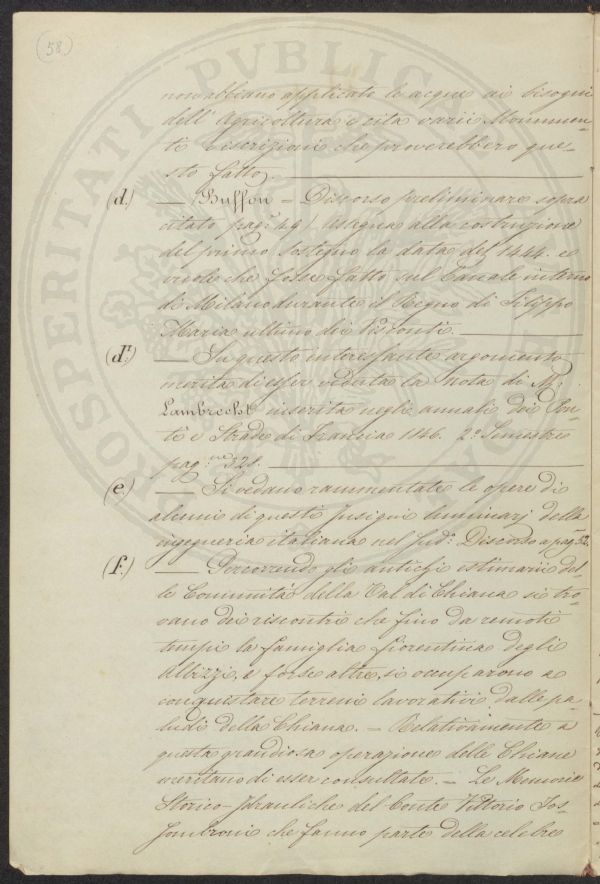 (58)
non abbiano applicato le acque ai bisogni
dell'Agricoltura e cita varii Monumen-
ti e iscrizioni che proverebbero que-
sto fatto.
(d.) — (Buffon = Discorso preliminare sopra
citato pag: 49) Assegna alla costruzione
del primo Sostegno la data del 1444. e
vuole che fosse fatto sul Canale interno
di Milano durante il Regno di Filippo
Maria ultimo dei Visconti.
(d'.) — Su questo interessante argomento
merita di esser veduta la nota di Mr.
Lambrecht inserita negli annali dei Pon-
ti e Strade di Francia 1846. 2º Semestre
pag.ne 321.
(e.) — Si vedano rammentate le opere di
alcuni di questi Insigni luminarj della
ingegneria italiana nel sud: Discorso a pag. 52.
(f.) — Percorrendo gli antichi estimarii del-
le Comunità della Val di Chiana si tro-
vano dei riscontri che fino da remoti
tempi la famiglia fiorentina degli
Albizzi, e forse altre, si occuparono a
conquistare terreni lavorativi dalle pa-
ludi della Chiana. — Relativamente a
questa grandiosa operazione delle Chiane
meritano di esser consultate. — Le Memorie
Storico-Idrauliche del Conte Vittorio Fos-
sombroni che fanno parte della celebre
PROSPERITATI PVBLICAE